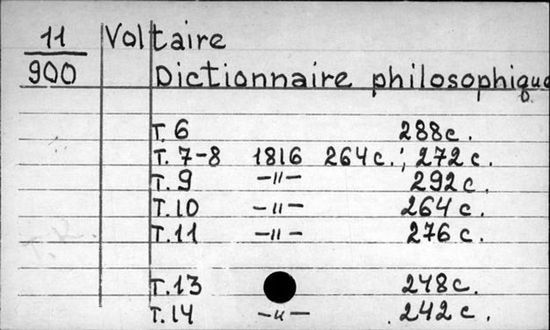 11
900
Voltaire
Dictionnaire philosophique
Т. 6 288с.
Т. 7-8 1816 264с.; 272с.
Т. 9 -〃- 292с.
Т. 10 -〃- 264с.
Т. 11 -〃- 276с.
Т. 13 248с.
Т. 14 -〃- 242с.